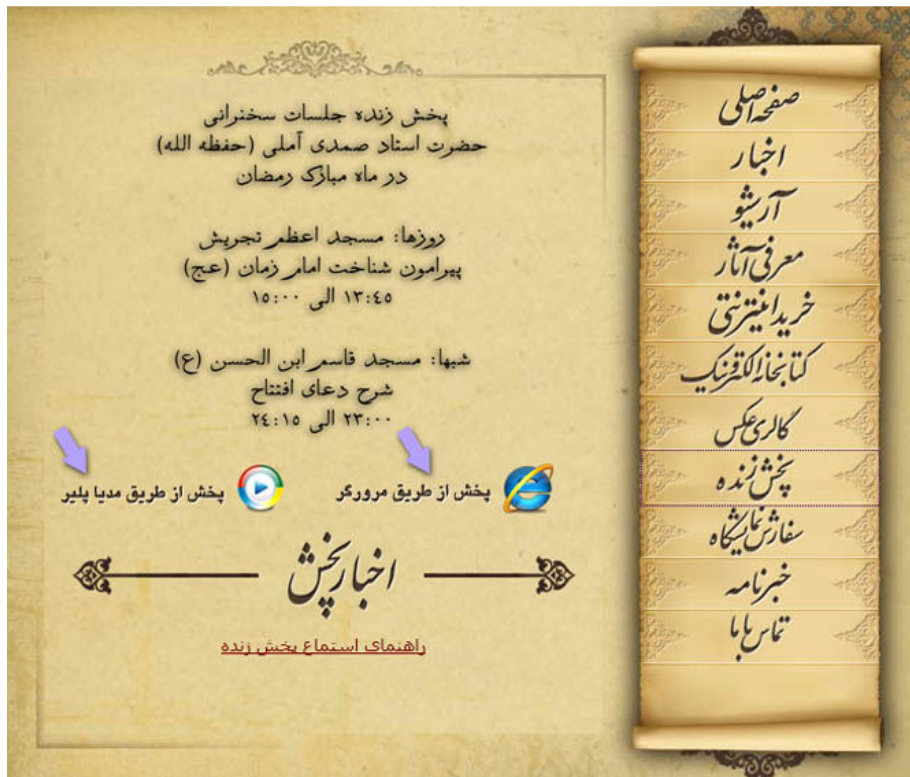 صفحه اصلی
اخبار
آرشیو
معرفی آثار
خرید اینترنتی
کتابخانه الکترونیک
گالری عکس
پخش زنده
سفارش نمایشگاه
خبرنامه
تماس با ما
پخش زنده جلسات سخنرانی
حضرت استاد صمدی آملی (حفظه الله)
در ماه مبارک رمضان
روزها: مسجد اعظم تجریش
پیرامون شناخت امام زمان (عج)
۱۳:٤٥ الی ۱٥:۰۰
شبها: مسجد قاسم ابن الحسن (ع)
شرح دعای افتتاح
۲۳:۰۰ الی ۲٤:۱٥
پخش از طریق مرورگر
پخش از طریق مدیا پلیر
اخبار پخش
راهنمای استماع پخش زنده